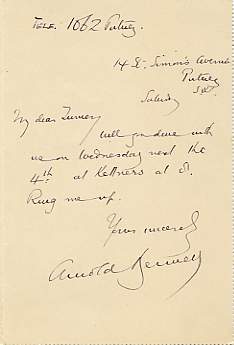 TELE. 1662 Putney
14 St. Simon's Avenue
Putney
S.W.
Saturday
My dear
Will you dine with
me on Wednesday next the
4th at Kettners at 8.
Ring me up.
Yours sincerely
Arnold Bennett